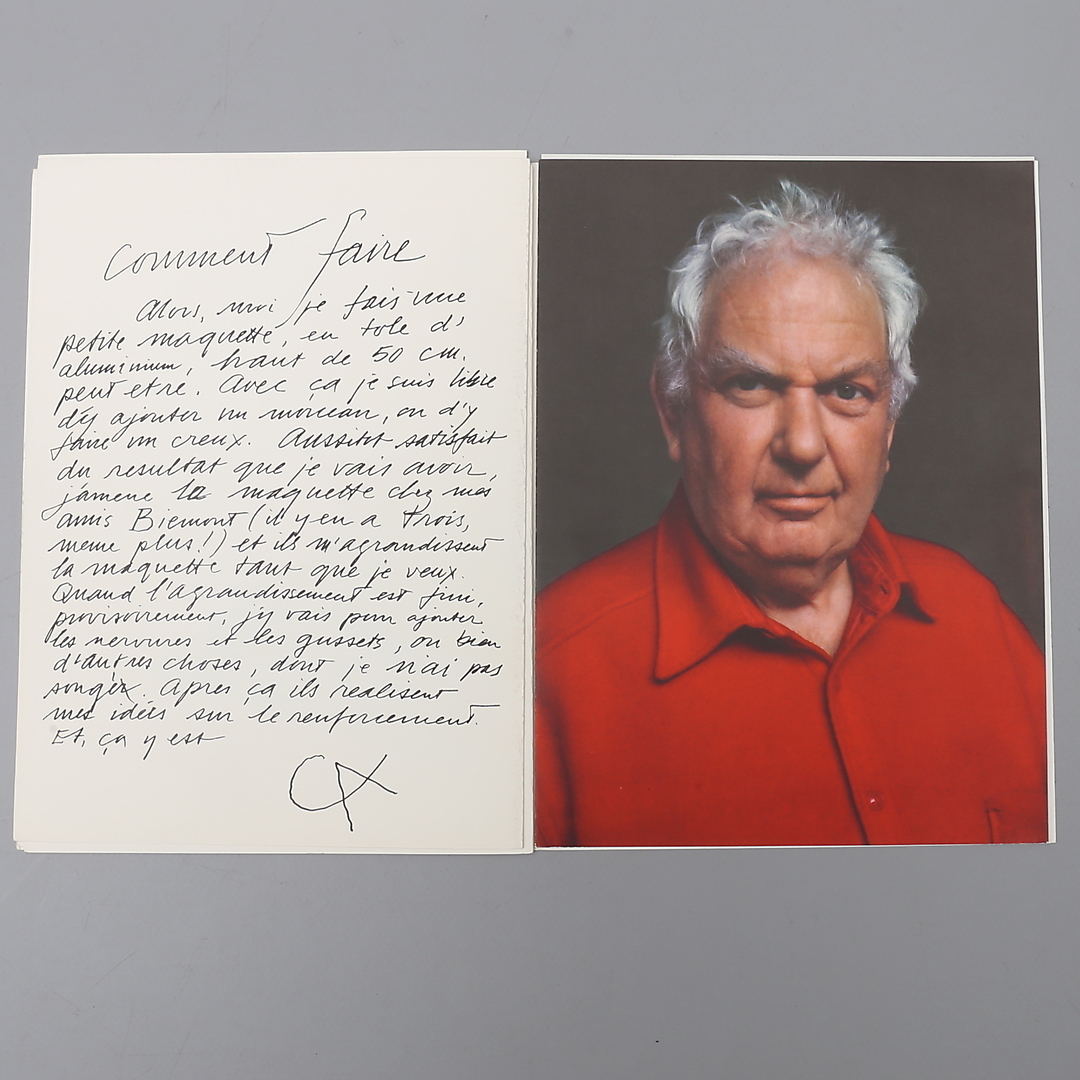 Comment faire
Alors, moi je fais une
petite maquette, en tole d'
aluminium, haut de 50 cm.
peut etre. Avec ça je suis libre
d'y ajouter un morceau, ou d'y
faire un creux. Aussitot satisfait
du resultat que je vais avoir,
j'amene la maquette chez mes
amis Biemont (il y en a trois,
meme plus!) et ils m'agrandissent
la maquette tant que je veux.
Quand l'agrandissement est fini,
provisoirement, j'y vais pour ajouter
les nervures et les gussets, ou bien
d'autres choses, dont je n'ai pas
songéx. Apres ça ils realisent
mes idées sur le renforcement.
Et, ça y est
CA